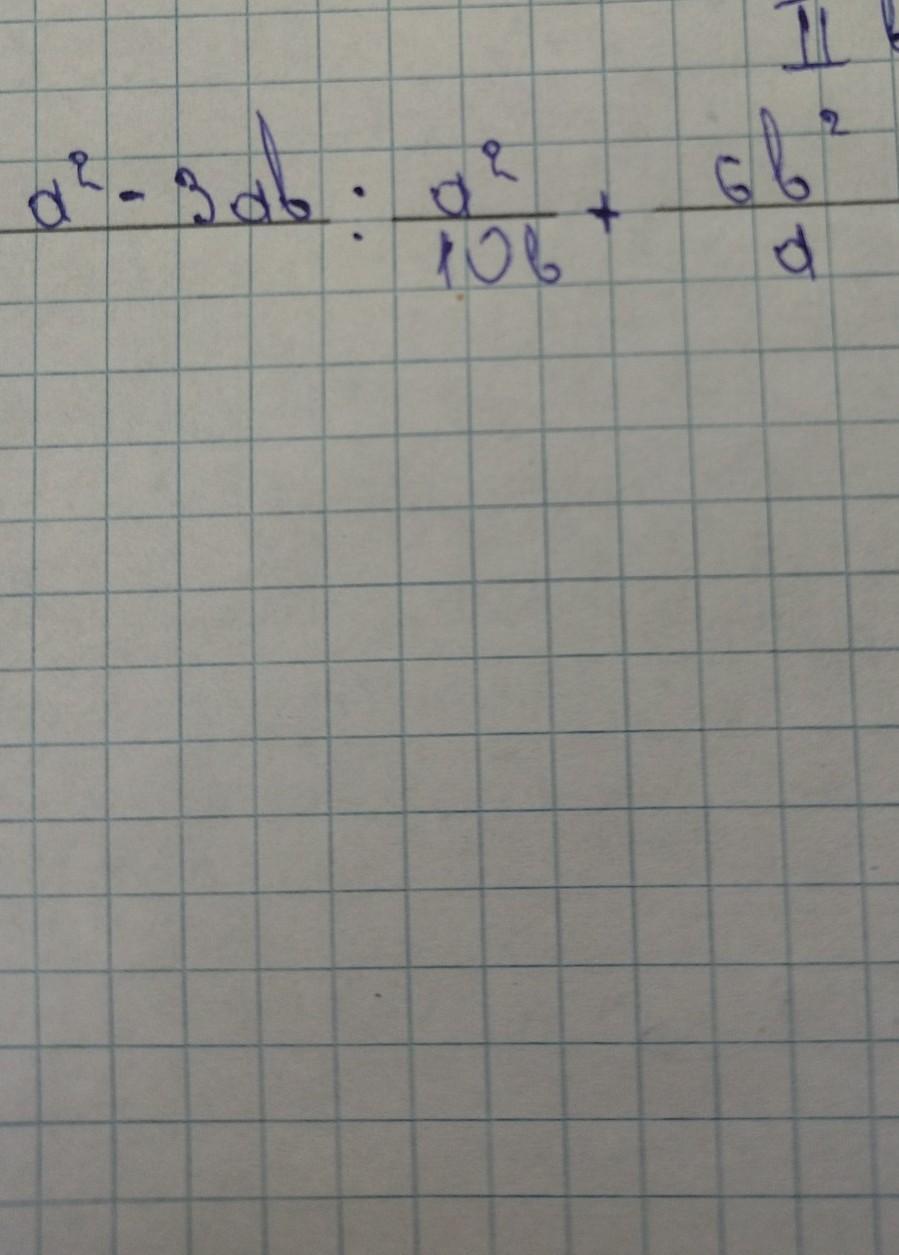 II
a² - 3ab : a²/10b + 6b²/a